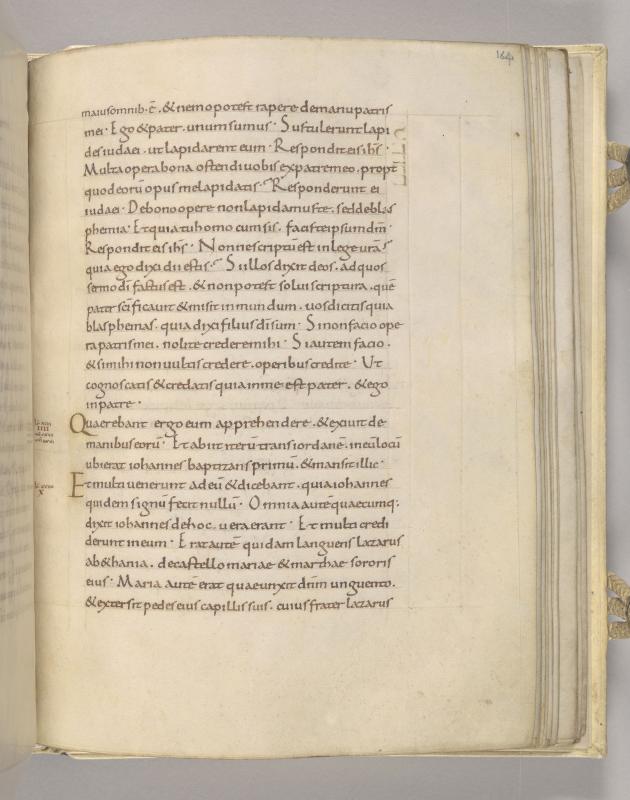 164
maiusomnib; ē. & nemo potest rapere demanu patris
mei· Ego & pater· unum sumus· Sustulerunt lapi
des iudaei· ut lapidarent eum· Respondit eis ihs·
Multa opera bona ostendi uobis ex patre meo· propt̄
quod eorū opus me lapidatis· Responderunt ei
iudaei· De bono opere non lapidamus te· sed de blas
phemia· Et quia tu homo cum sis· facis te ipsum dm̄·
Respondit eis ihs· Nonne scriptū est in lege urā
quia ego dixi dii estis· Si illos dixit deos· ad quos
sermo dī factus est· & non potest solui scriptura· quē
pater scīficauit & misit in mundum· uos dicitis quia
blasphemas· quia dixi filius dī sum· Si non facio ope
ra patris mei· nolite credere mihi· Si autem facio·
& si mihi non uultis credere· operibus credite· Ut
cognoscatis & credatis quia in me est pater· & ego
in patre·
Quaerebant ergo eum apprehendere· & exiuit de
manibus eorū· Et abiit iterū trans iordanē· in eū locū
ubi erat iohannes baptizans primū· & mansit illic·
Et multi uenerunt ad eū & dicebant· quia iohannes
quidem signū fecit nullū· Omnia autē quaecumq;
dixit iohannes de hoc· uera erant· Et multi credi
derunt in eum· Erat autē quidam languens lazarus
a b&hania· de castello mariae & marthae sororis
eius· Maria autē erat quae unxit dnm̄ unguento·
& extersit pedes eius capillis suis· cuius frater lazarus